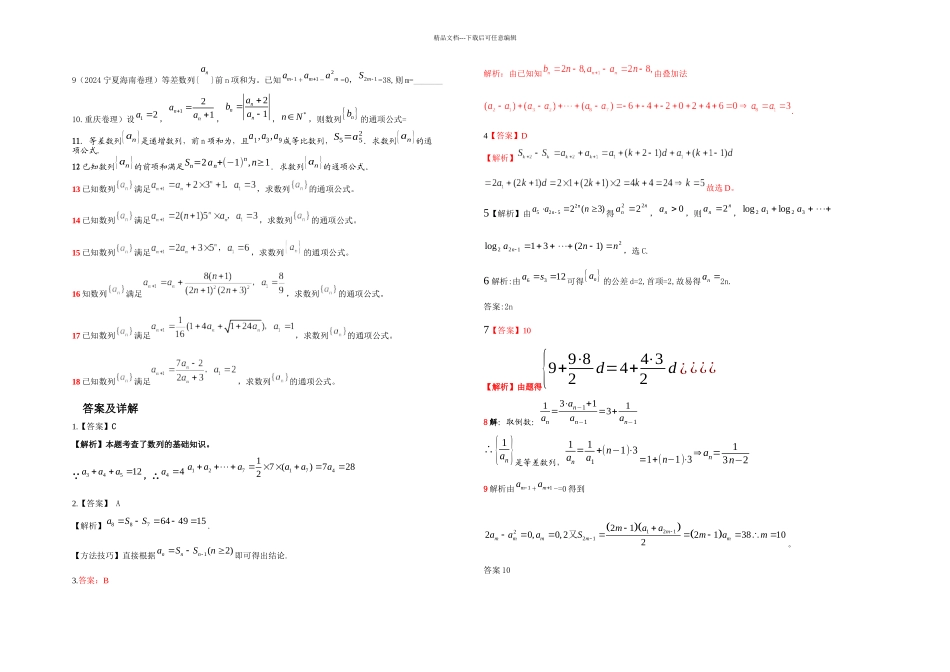 精品文档---下载后可任意编辑
9（2024 宁夏海南卷理）等差数列{ aₙ }前 n 项和为。已知 aₘ₋₁ + aₘ₊₁ − a²ₘ =0，S₂ₘ₋₁ =38,则 m=_______
10.重庆卷理）设 a₁ = 2 ，aₙ₊₁ = 2/(aₙ + 1) ，bₙ = |(aₙ + 2)/(aₙ − 1)| ，n∈N* ，则数列{bₙ} 的通项公式=
11. 等差数列{aₙ}是递增数列，前 n 项和为，且 a₁, a₃, a₉ 成等比数列，S₅ = a₅² ．求数列{aₙ}的通
项公式.
12 已知数列{aₙ}的前项和满足 Sₙ=2aₙ+(−1)ⁿ, n≥1 ．求数列{aₙ}的通项公式。
13 已知数列{aₙ}满足 aₙ₊₁ aₙ 2 3ⁿ 1，a₁ 3 ，求数列{aₙ}的通项公式。
14 已知数列{aₙ}满足 aₙ₊₁ 2(n 1)5ⁿ aₙ，a₁ 3 ，求数列{aₙ}的通项公式。
15 已知数列{aₙ}满足 aₙ₊₁ 2aₙ 3 5ⁿ，a₁ 6 ，求数列{aₙ}的通项公式。
16 知数列{aₙ}满足 aₙ₊₁ aₙ 8(n 1)/((2n 1)²(2n 3)²)，a₁ 8/9 ，求数列{aₙ}的通项公式。
17 已知数列{aₙ}满足 aₙ₊₁ 1/16(1 4aₙ √(1 24aₙ))，a₁ 1 ，求数列{aₙ}的通项公式。
18 已知数列{aₙ}满足 aₙ₊₁ (7aₙ 2)/(2aₙ 3)，a₁ 2 ，求数列{aₙ}的通项公式。
答案及详解
1.【答案】C
【解析】本题考查了数列的基础知识。
∵ a₃ a₄ a₅ 12 ，∴ a₄ 4 a₁ a₂ ⋯ a₇ 1/2 7 (a₁ a₇) 7a₄ 28
2.【答案】 A
【解析】a₈ S₈ S₇ 64 49 15 .
【方法技巧】直接根据 aₙ Sₙ Sₙ₋₁(n 2) 即可得出结论.
3.答案：B
解析：由已知知 bₙ 2n 8, aₙ₊₁ aₙ 2n 8, 由叠加法
(a₂ a₁) (a₃ a₂) ⋯ (a₈ a₇) 6 4 2 0 2 4 6 0 ⇒ a₈ a₁ 3 .
4【答案】D
【解析】Sₖ₊₂ Sₖ aₖ₊₂ aₖ₊₁ a₁ (k 2 1)d a₁ (k 1 1)d
2a₁ (2k 1)d 2 1 (2k 1) 2 4k 4 24 ⇒ k 5 故选 D。
5【解析】由 a₅ a₂ₙ₋₅ 2²ⁿ(n 3) 得 aₙ² 2²ⁿ ，aₙ 0 ，则 aₙ 2ⁿ ，log₂ a₁ log₂ a₃ +
log₂ a₂ₙ₋₁ 1 3 (2n 1) n² ，选 C.
6 解析:由 a₆ s₃ 12 可得{aₙ} 的公差 d=2,首项=2,故易得 aₙ 2n.
答案:2n
7【答案】10
【解析】由题得 {9 + 9·8/2 d = 4 + 4·3/2 d ¿ ¿ ¿ ¿
8 解：取倒数：1/aₙ = (3·aₙ₋₁+1)/aₙ₋₁ = 3 + 1/aₙ₋₁
∴ {1/aₙ} 是等差数列， 1/aₙ = 1/a₁ + (n−1)·3 =1+(n−1)·3 ⇒ aₙ = 1/(3n−2)
9 解析由 aₘ₋₁ + aₘ₊₁ -=0 得到
2aₘ aₘ² 0, aₘ 0, 2 又 S₂ₘ₋₁ (2m 1)(a₁ a₂ₘ₋₁)/2 (2m 1)aₘ 38 ∴ m 10 。
答案 10